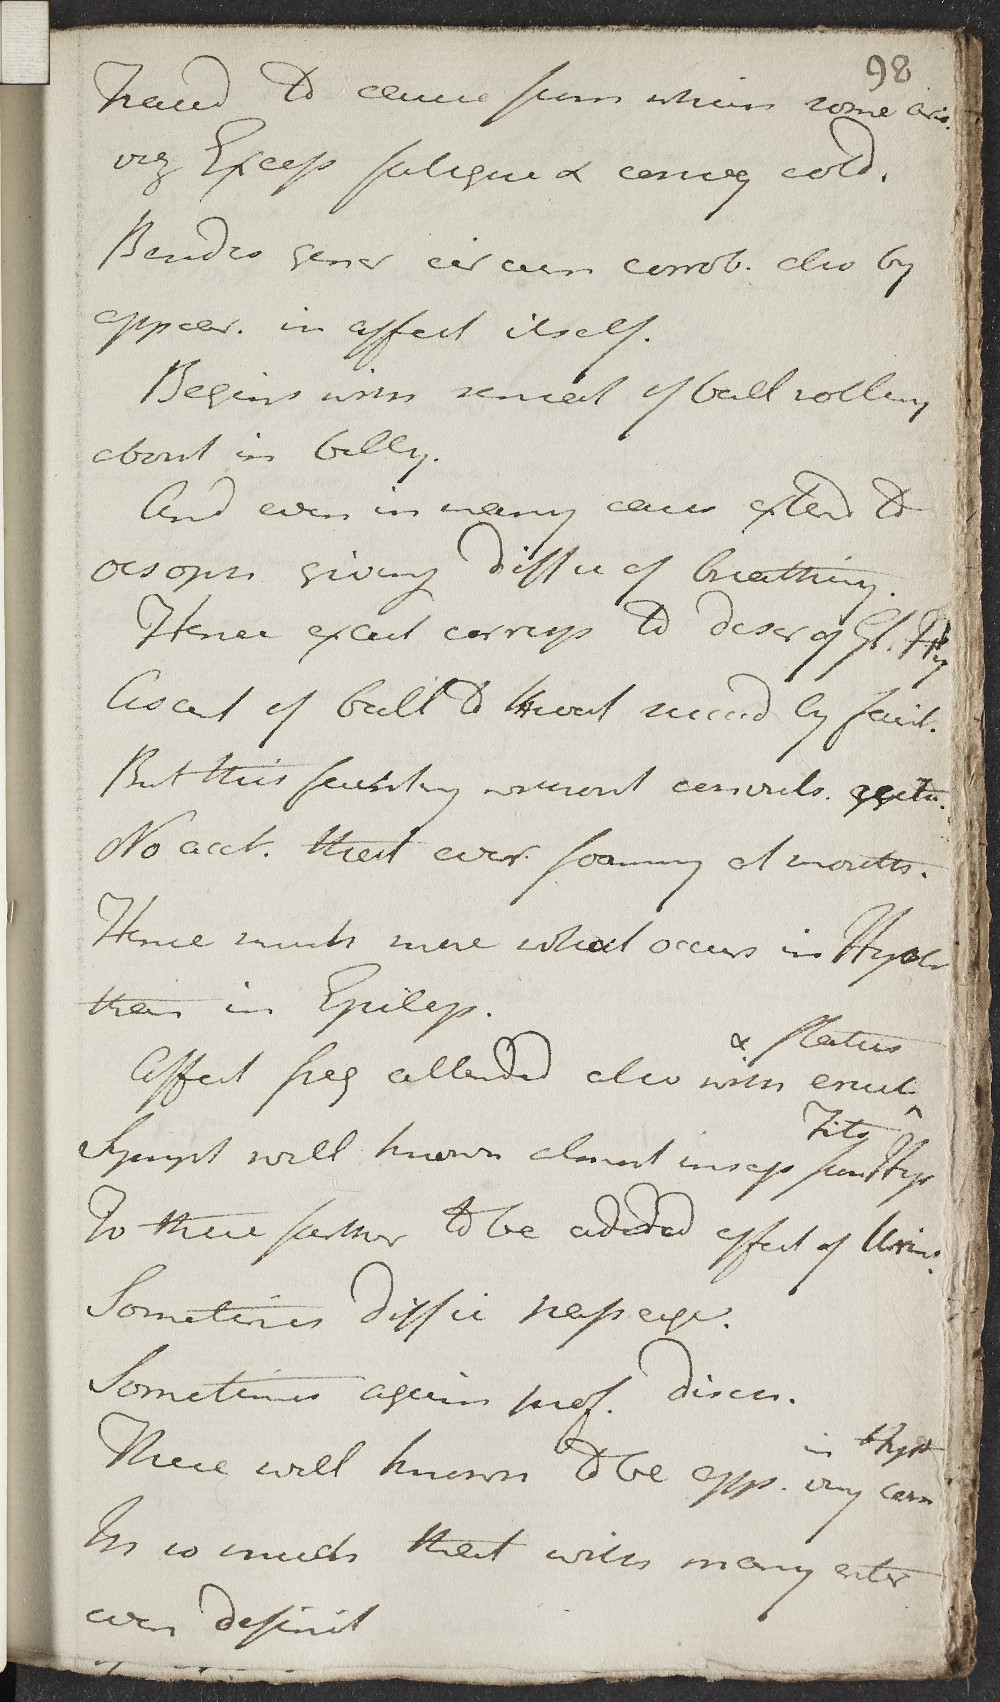 98
Traced to cause from which some aris.
viz Except fatigue & caring cold.
Besides gener circum corrob. also by
appear. in affect itself.
Begins with sensat of ball rolling
about in belly.
And even in many cases extend to
oesoph giving diffic of breathing.
Hence exact corresp to descr of Gl. Hy
Ascent of ball to throat succeed by faint.
But this fainting without convuls. agita.
No acct. that ever foaming at mouth.
Hence much more what occurs in Hyster
than in Epilep.
& flatus
Affect freq attended also with eruct
Fits
Sympt well known almost insep from Hys
To these further to be added affect of Urin.
Sometimes diffic passage.
Sometimes again prof. disch.
in Hyst
These well known to be app. very com
In so much that with many enter
even definit